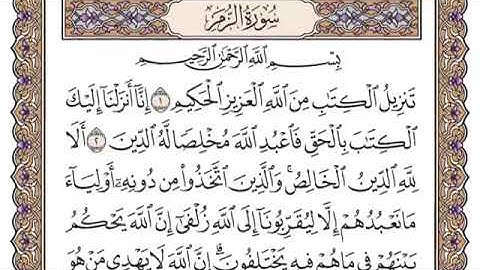 سُورَةُ الزُّمَرِ
بِسْمِ اللَّهِ الرَّحْمَٰنِ الرَّحِيمِ
تَنزِيلُ الْكِتَٰبِ مِنَ اللَّهِ الْعَزِيزِ الْحَكِيمِ ١ إِنَّآ أَنزَلْنَآ إِلَيْكَ
الْكِتَٰبَ بِالْحَقِّ فَاعْبُدِ اللَّهَ مُخْلِصًا لَّهُ الدِّينَ ٢ أَلَا
لِلَّهِ الدِّينُ الْخَالِصُ ۚ وَالَّذِينَ اتَّخَذُوا۟ مِن دُونِهِۦٓ أَوْلِيَآءَ
مَا نَعْبُدُهُمْ إِلَّا لِيُقَرِّبُونَآ إِلَى اللَّهِ زُلْفَىٰٓ إِنَّ اللَّهَ يَحْكُمُ
بَيْنَهُمْ فِى مَا هُمْ فِيهِ يَخْتَلِفُونَ ۗ إِنَّ اللَّهَ لَا يَهْدِى مَنْ هُوَ